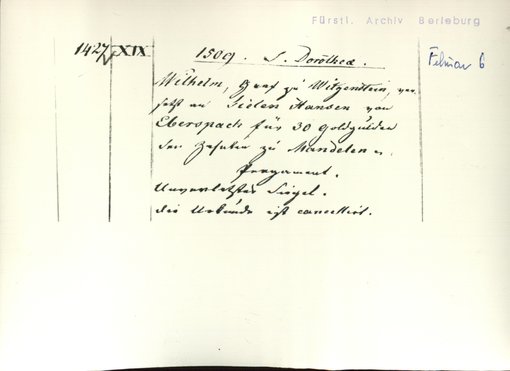 Fürstl. Archiv Berleburg
1427 XIX 1509. S. Dorothea. Februar 6
Wilhelm, Graf zu Witgenstein, ver
setzt an Hansen von
Eberspach für 30 Goldgulden
den Zehnden zu Mandelen
Pergament.
Unverletztes Siegel.
die Urkunde ist cancellirt.